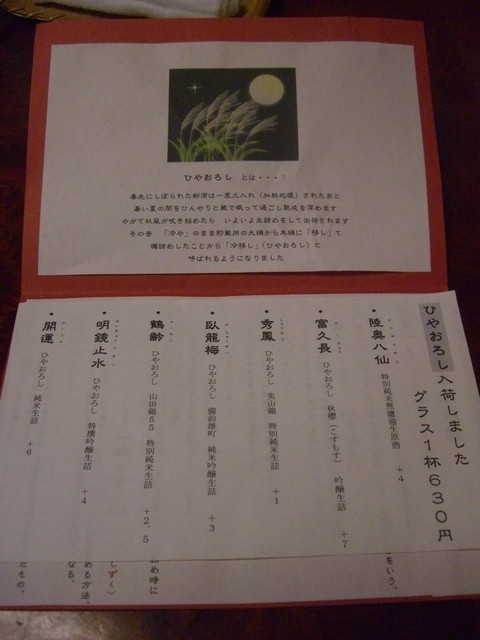 ひやおろし とは・・・?
春先にしぼられた新酒は一度火入れ(加熱処理)されたあと
暑い夏の間をひんやりと蔵で眠って過ごし熟成を深めます
やがて秋風が吹き始めたら いよいよ生詰めをして出荷されます
その昔 「冷や」のまま貯蔵用の大桶から木桶に「移し」て
樽詰めしたことから「冷移し」(ひやおろし)と
呼ばれるようになりました
ひやおろし入荷しました
グラス1杯630円
・陸奥八仙 特別純米無濾過生原酒 +4
・富久長 ひやおろし 秋櫻(こすもす) 吟醸生詰 +7
・秀鳳 ひやおろし 美山錦 特別純米生詰 +1
・臥龍梅 ひやおろし 備前雄町 純米吟醸生詰 +3
・鶴齢 ひやおろし 山田錦55 特別純米生詰 +2、5
・明鏡止水 ひやおろし 特撰吟醸生詰 +4
・開運 ひやおろし 純米生詰 +6
をいう。
め時に
しずく)
める方法。
なる。
たもの。